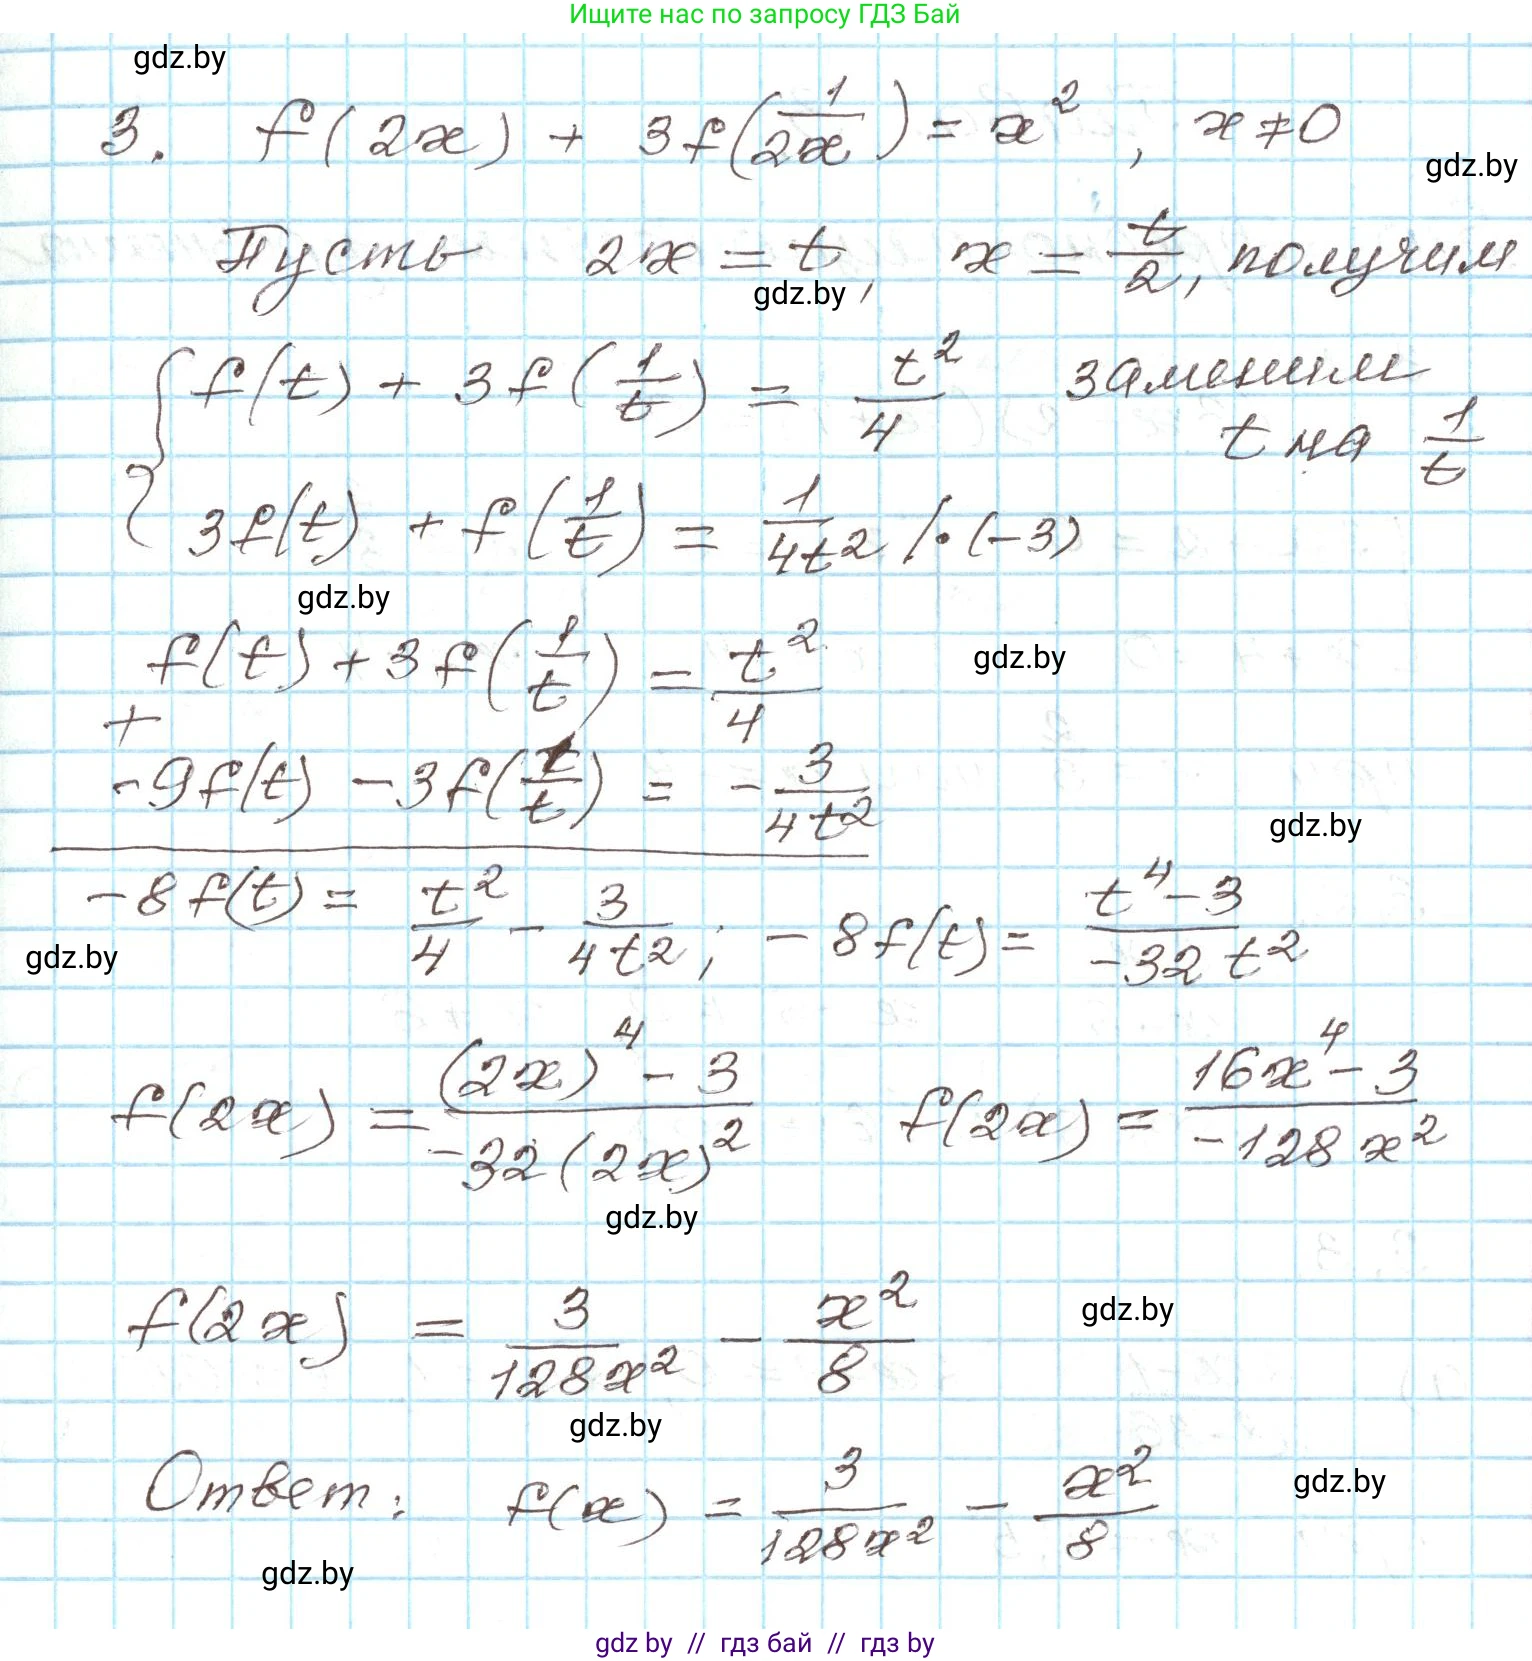 Ищите нас по запросу ГДЗ Бай
gdz.by
3. f(2x) + 3f(1/2x) = x², x≠0
gdz.by
Пусть 2x = t, x = t/2, получим
gdz.by
f(t) + 3f(1/t) = t²/4 заменим
t на 1/t
3f(t) + f(1/t) = 1/4t² /·(-3)
gdz.by
f(t) + 3f(1/t) = t²/4
gdz.by
+
-9f(t) - 3f(1/t) = -3/4t²
gdz.by
-8f(t) = t²/4 - 3/4t²; -8f(t) = t⁴-3/-32t²
gdz.by
f(2x) = (2x)⁴-3/-32(2x)² f(2x) = 16x⁴-3/-128x²
gdz.by
f(2x) = 3/128x² - x²/8
gdz.by
gdz.by
Ответ: f(x) = 3/128x² - x²/8
gdz.by
gdz.by
gdz by // гдз бай // гдз by